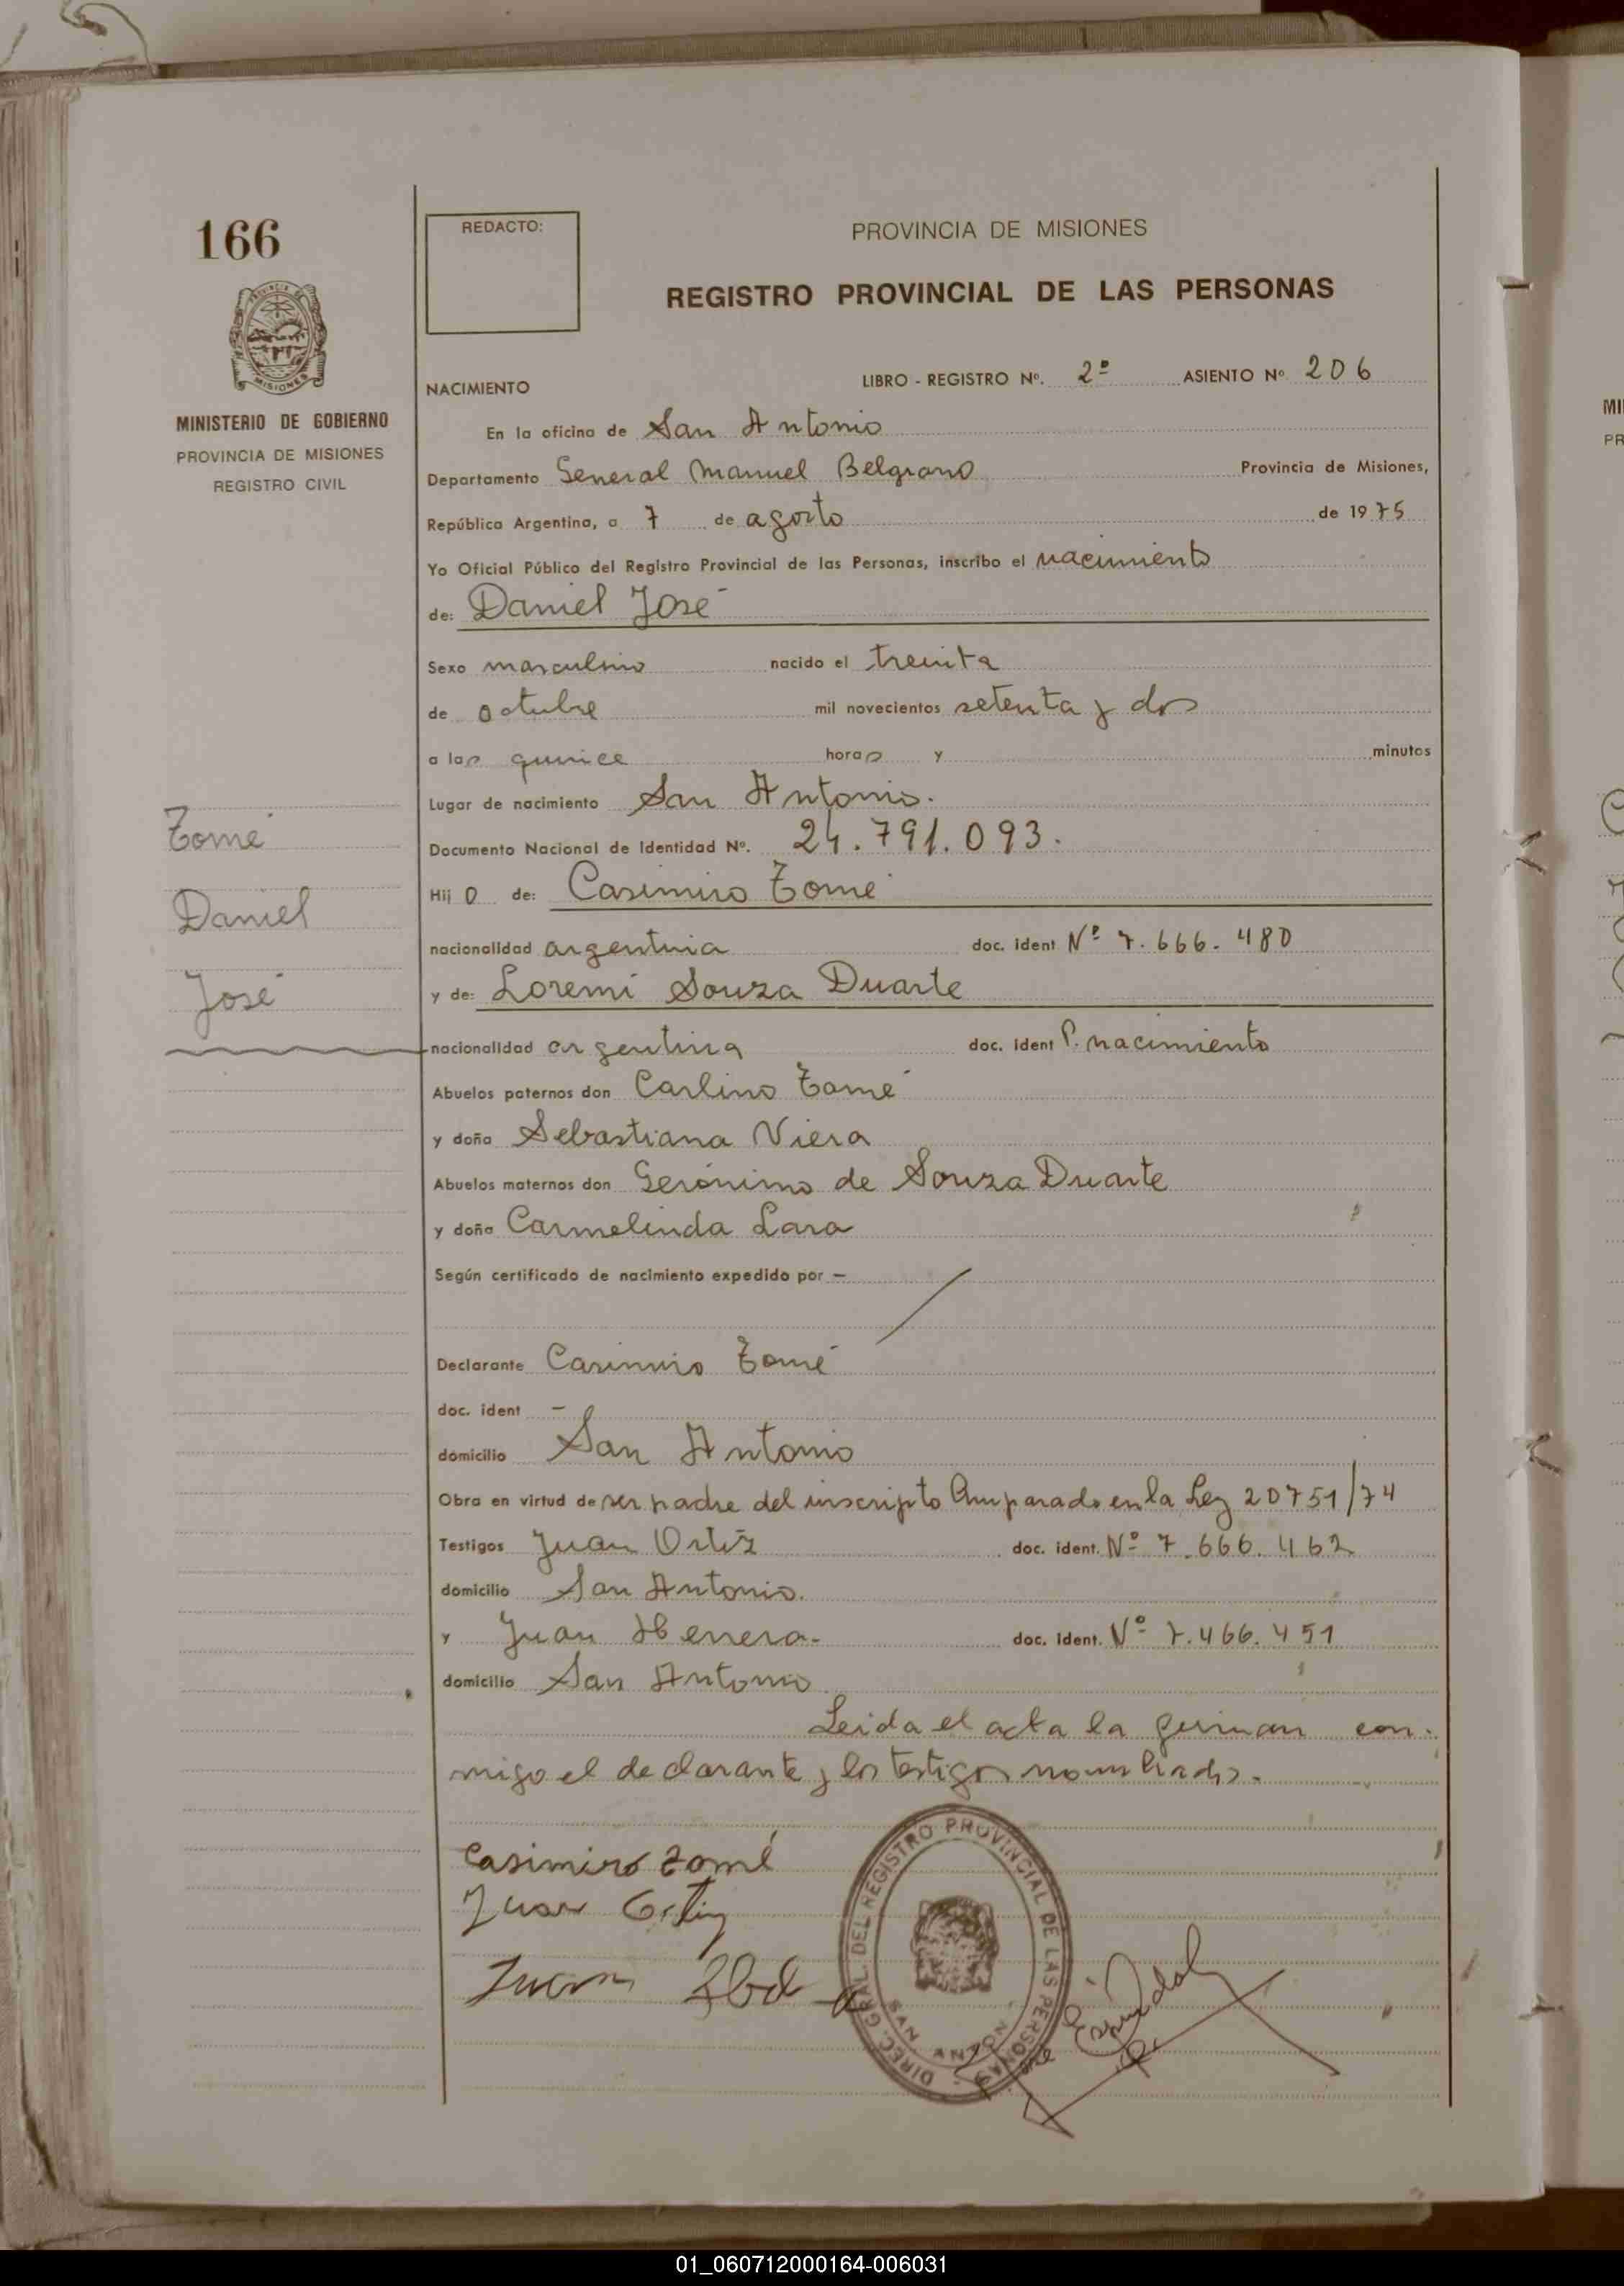 166
REDACTO:
PROVINCIA DE MISIONES
REGISTRO PROVINCIAL DE LAS PERSONAS
MISIONES
MINISTERIO DE GOBIERNO
PROVINCIA DE MISIONES
REGISTRO CIVIL
NACIMIENTO
LIBRO - REGISTRO Nº. 2º ASIENTO Nº 206
En la oficina de San Antonio
Departamento General Manuel Belgrano Provincia de Misiones,
República Argentina, a 7 de agosto de 1975
Yo Oficial Público del Registro Provincial de las Personas, inscribo el nacimiento
de: Daniel José
Sexo masculino nacido el treinta
de octubre mil novecientos setenta y dos
a las quince horas y minutos
Lugar de nacimiento San Antonio.
Documento Nacional de Identidad Nº. 24.791.093.
Hij o de: Casimiro Tomé
nacionalidad argentina doc. ident Nº 7.666.480
y de: Loremi Souza Duarte
nacionalidad argentina doc. ident P. nacimiento
Abuelos paternos don Carlino Tomé
y doña Sebastiana Viera
Abuelos maternos don Gerónimo de Souza Duarte
y doña Carmelinda Lara
Según certificado de nacimiento expedido por —
Declarante Casimiro Tomé
doc. ident —
domicilio San Antonio
Obra en virtud de ser padre del inscripto Amparado en la Ley 20751/74
Testigos Juan Ortiz doc. ident. Nº 7.666.462
domicilio San Antonio.
y Juan Herrera- doc. ident. Nº 7.466.451
domicilio San Antonio
Leida el acta la firman con-
migo el declarante y los testigos nombrados.
Tomé
Daniel
José
Casimiro Tomé
Juan Ortiz
Juan
DIREC. GRAL. DEL REGISTRO PROVINCIAL DE LAS PERSONAS
SAN ANTONIO
01_060712000164-006031